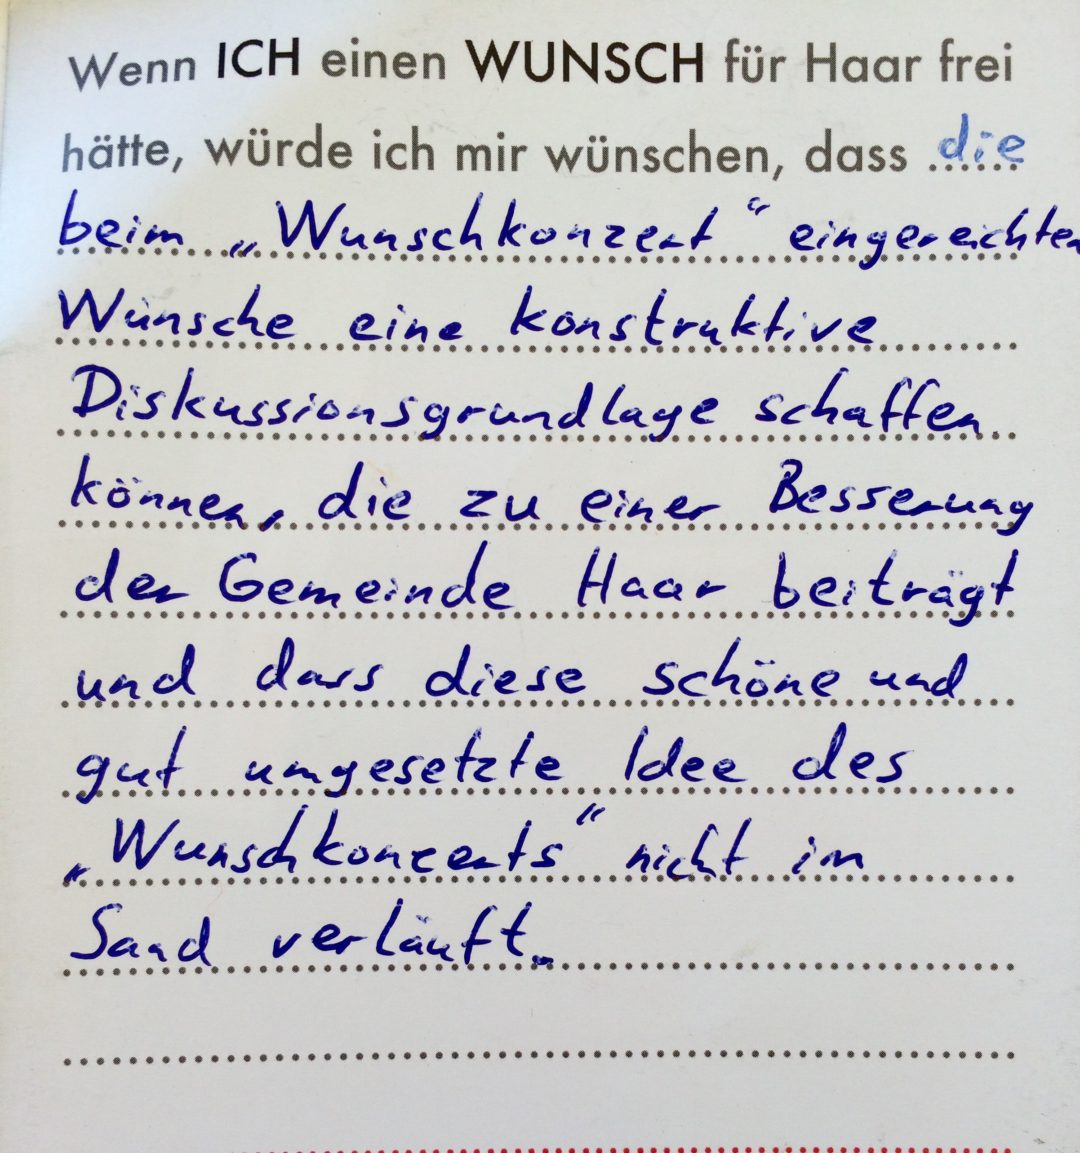 Wenn ICH einen WUNSCH für Haar frei
hätte, würde ich mir wünschen, dass die
beim „Wunschkonzert“ eingereichten
Wünsche eine konstruktive
Diskussionsgrundlage schaffen
können, die zu einer Besserung
der Gemeinde Haar beiträgt
und dass diese schöne und
gut umgesetzte Idee des
„Wunschkonzerts“ nicht im
Sand verläuft.